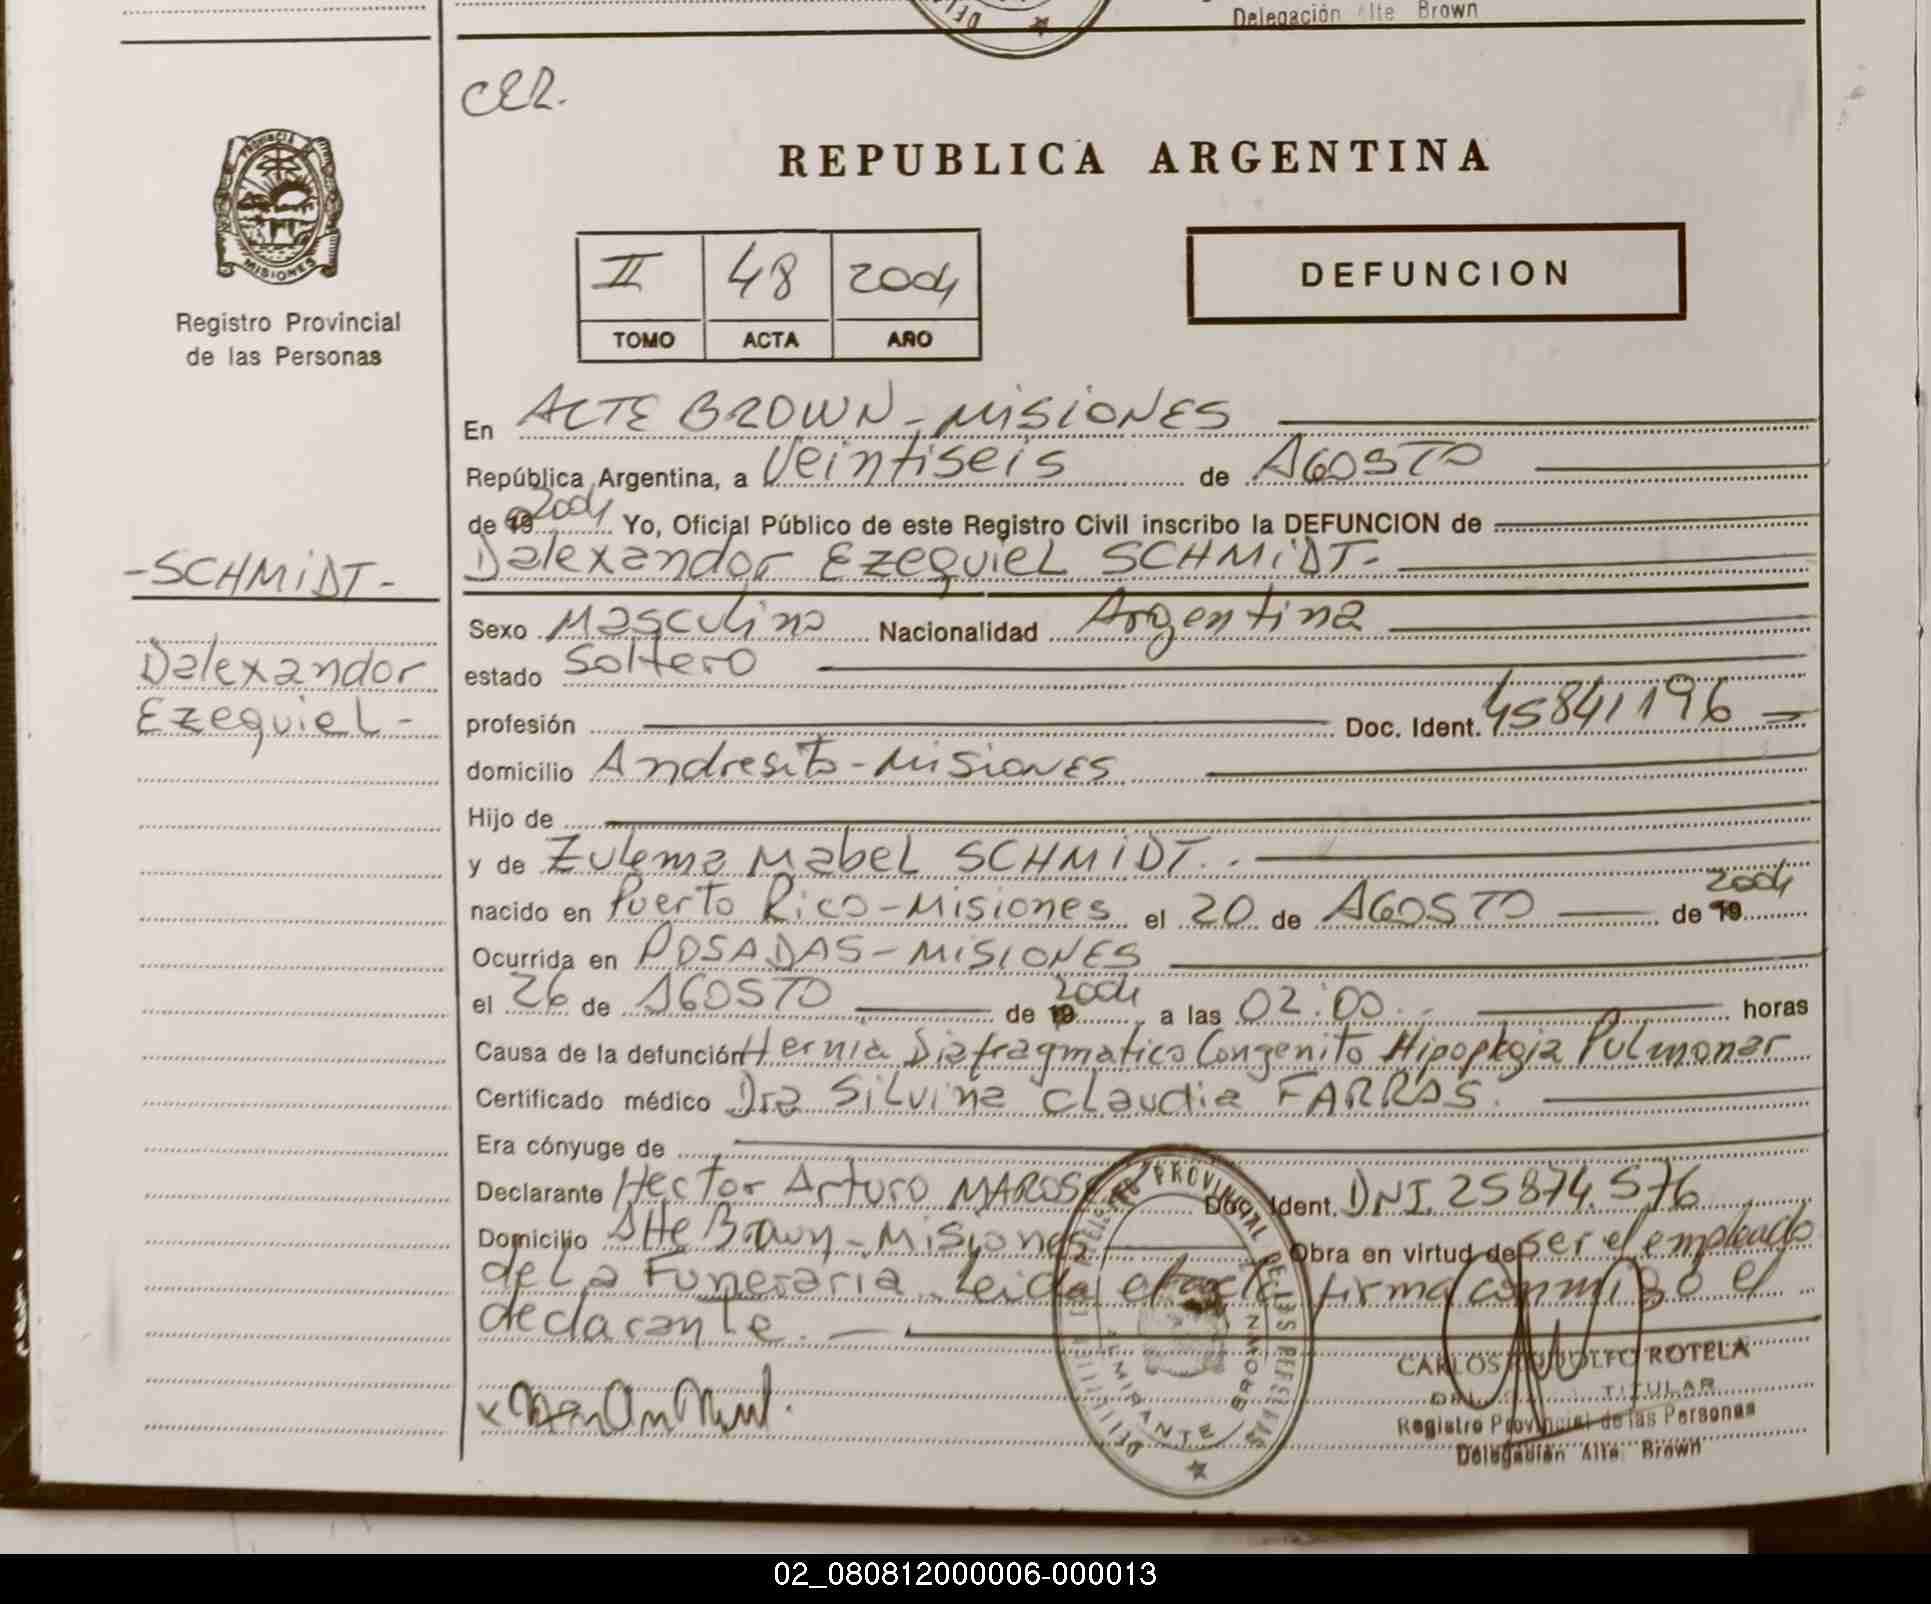 Delegación Alte Brown
CER.
REPUBLICA ARGENTINA
PROVINCIA
MISIONES
Registro Provincial
de las Personas
II 48 2004
TOMO ACTA AÑO
DEFUNCION
En ALTE BROWN - MISIONES
República Argentina, a Veintiseis de AGOSTO
de 19 2004 Yo, Oficial Público de este Registro Civil inscribo la DEFUNCION de
Dalexandor Ezequiel SCHMIDT.-
-SCHMIDT-
Dalexandor
Ezequiel-
Sexo Masculino Nacionalidad Argentina
estado Soltero
profesión Doc. Ident. 45841196
domicilio Andresito - Misiones
Hijo de
y de Zulema Mabel SCHMIDT..
nacido en Puerto Rico - Misiones el 20 de AGOSTO de 19 2004
Ocurrida en POSADAS - MISIONES
el 26 de AGOSTO de 19 2004 a las 02:00.. horas
Causa de la defunción Hernia Diafragmatica Congenito Pulmonar
Certificado médico Dra Silvina Claudia FARRAS.
Era cónyuge de
Declarante Hector Arturo Doc. Ident. DNI. 25874.576
Domicilio Alte Brown - Misiones Obra en virtud de ser el empleado
de La Funeraria. Leida el acta firma conmigo el
declarante.
x
PROVINCIAL DE LAS PERSONAS
ALMIRANTE BROWN
CARLOS RODOLFO ROTELA
TITULAR
Registro Provincial de las Personas
Delegación Alte. Brown
02_080812000006-000013